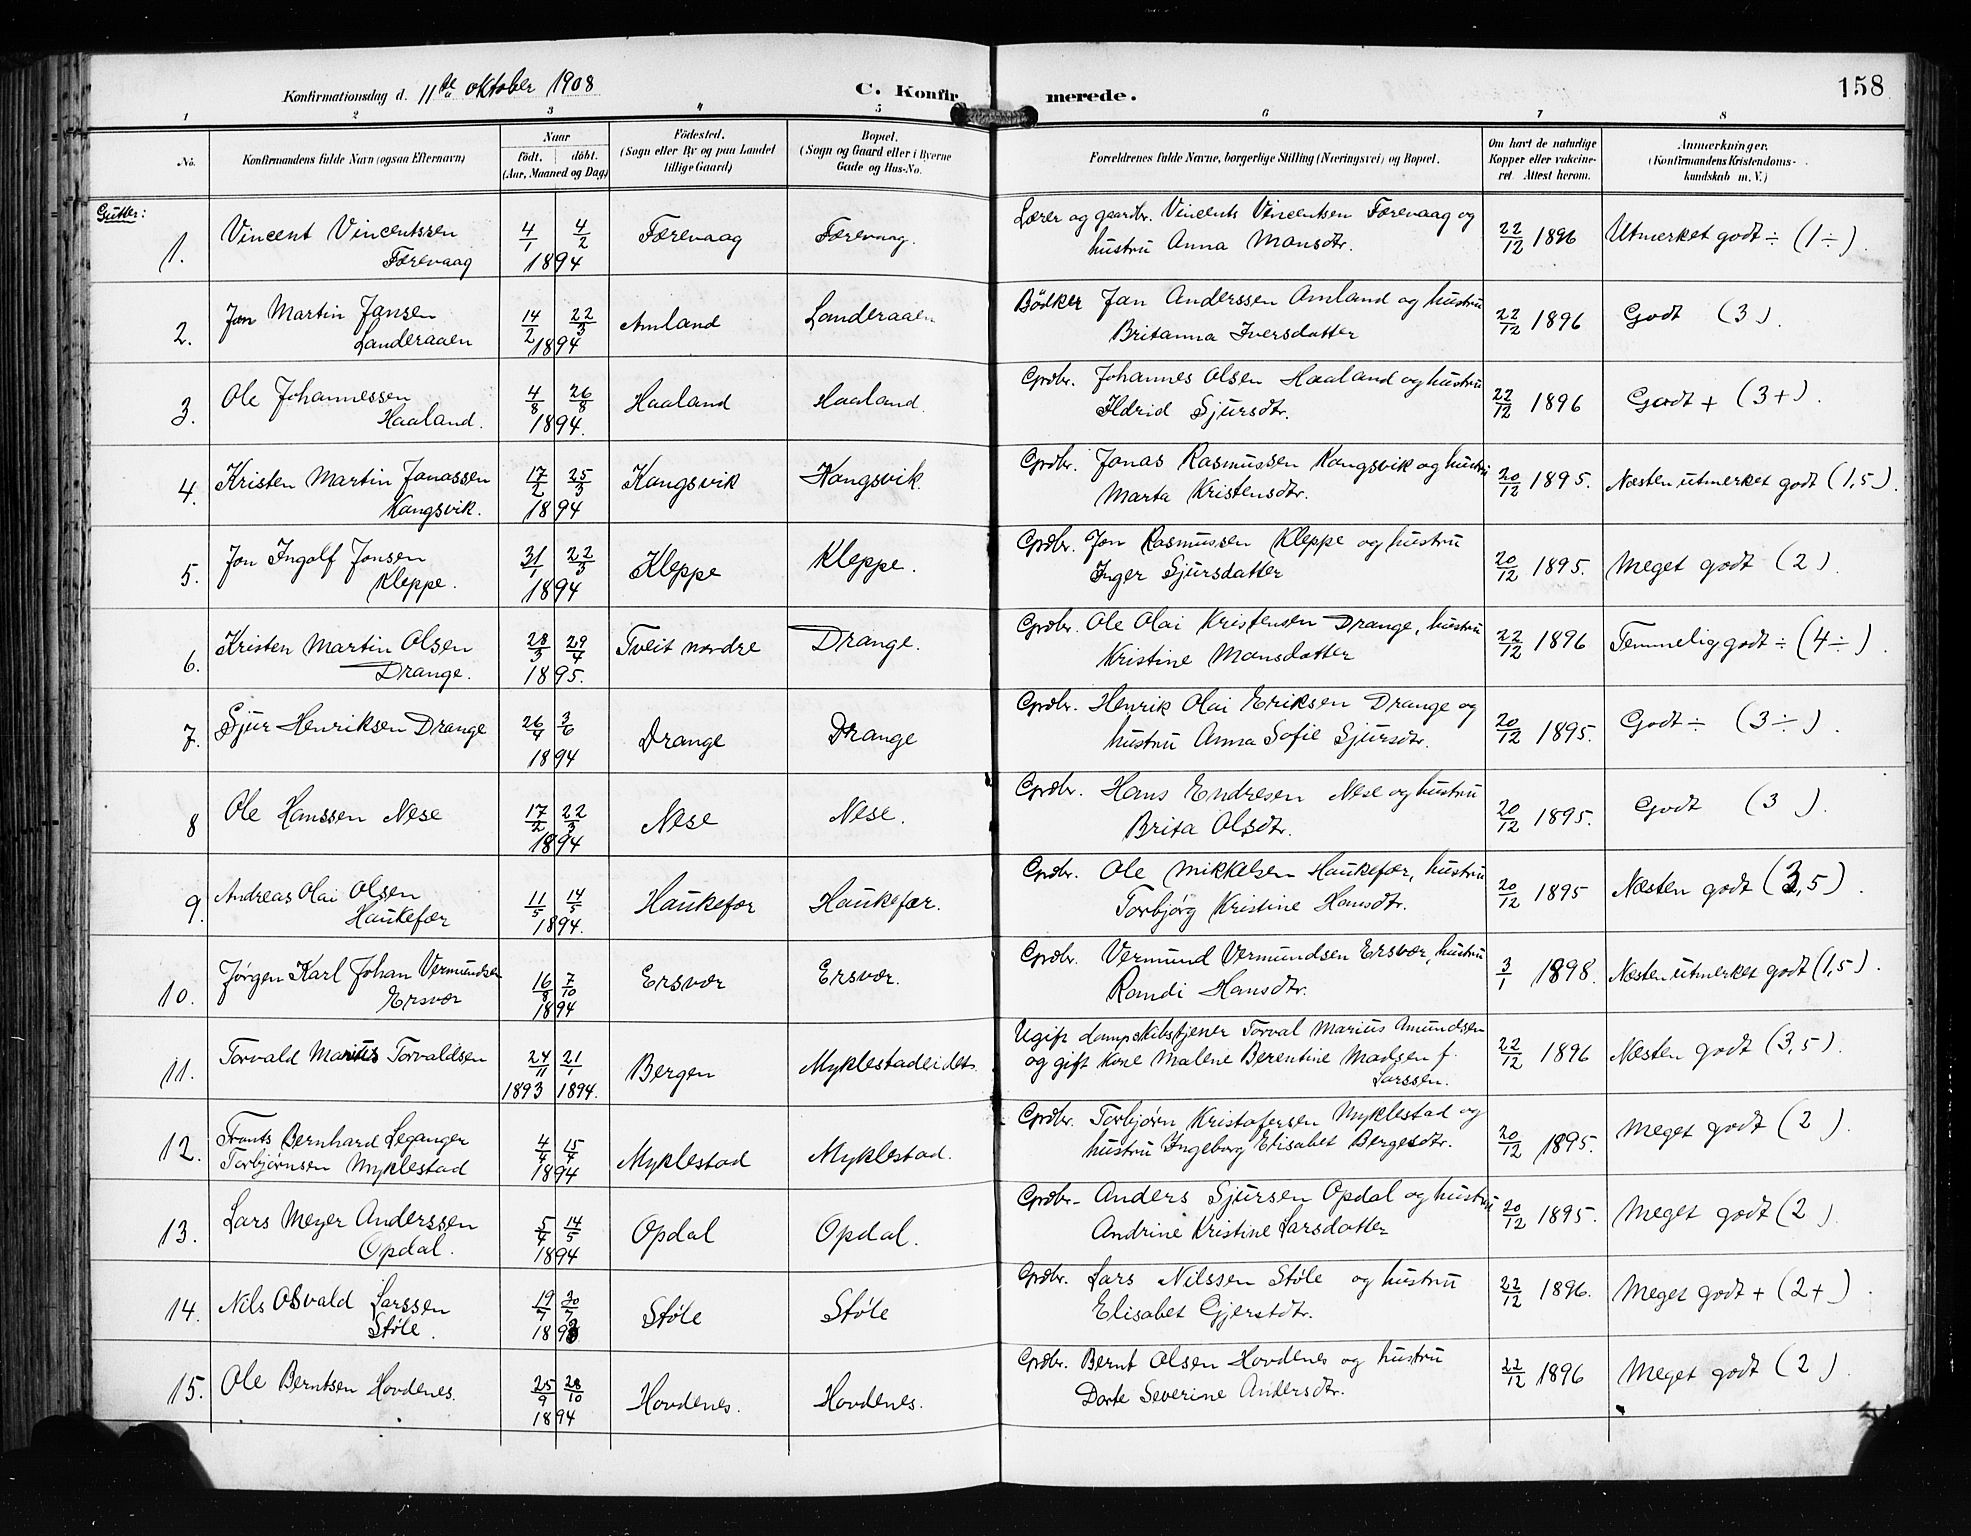 Konfirmationsdag d. 11te oktober 1908 C. Konfirmerede. 158
1 2 3 4 5 6 7 8
No. Konfirmandens fulde Navn (ogsaa Efternavn) Naar födt. döbt. (Aar, Maaned og Dag) Födested. (Sogn eller By og paa Landet tillige Gaard) Bopæl. (Sogn og Gaard eller i Byerne Gade og Hus-No. Forældrenes fulde Navne, borgerlige Stilling (Næringsvei) og Bopæl. Om havt de naturlige Kopper eller vakcineret. Attest herom. Anmerkninger. (Konfirmandens Kristendomskundskab m. V.)
Gutter:
1. Vincent Vincentssen Færevaag 4/1 4/2 1894 Færevaag Færevaag. Lærer og gaardbr. Vincents Vincentsen Færevaag og hustru Anna Monsdtr. 22/12 1896 Utmerket godt ÷ (1÷).
2. Jan Martin Jansen Landeraaen 14/2 22/3 1894 Amland Landeraaen Bödker Jan Anderssen Amland og hustru Britanna Iversdatter 22/12 1896 Godt (3).
3. Ole Johannessen Haaland. 4/8 26/8 1894. Haaland Haaland. Grdbr. Johannes Olsen Haaland og hustru Ildrid Sjursdtr. 22/12 1896 Godt + (3+).
4. Kristen Martin Jonassen Kongsvik. 17/2 25/3 1894 Kongsvik Kongsvik. Grdbr. Jonas Rasmussen Kongsvik og hustru Marta Kristensdtr. 20/12 1895. Næsten utmerket godt (1,5).
5. Jon Ingolf Jonsen Kleppe. 31/1 22/3 1894 Kleppe Kleppe. Grdbr. Jon Rasmussen Kleppe og hustru Inger Sjursdatter 20/12 1895. Meget godt (2).
6. Kristen Martin Olsen Drange. 28/3 29/4 1895. Tveit nordre Drange. Grdbr. Ole Olai Kristensen Drange, hustru Kristine Monsdatter 22/12 1896 Temmelig godt ÷ (4÷).
7. Sjur Henriksen Drange 26/4 3/6 1894 Drange Drange Grdbr. Henrik Olai Eriksen Drange og hustru Anna Sofie Sjursdtr. 20/12 1895. Godt ÷ (3÷).
8 Ole Hanssen Nese 17/2 22/3 1894 Nese Nese. Grdbr. Hans Endresen Nese og hustru Brita Olsdtr. 20/12 1895. Godt (3).
9. Andreas Olai Olsen Haukefær 11/5 14/5 1894. Haukefær Haukefær. Grdbr. Ole Mikkelsen Haukefær, hustru Torbjørg Kristine Hansdtr. 20/12 1895 Næsten godt (3,5).
10. Jørgen Karl Johan Vermundsen Ersvær 16/8 7/10 1894 Ersvær Ersvær. Grdbr. Vermund Vermundsen Ersvær, hustru Randi Hansdtr. 3/1 1898. Næsten utmerket godt (1,5).
11. Torvald Marius Torvaldsen 24/11 1893 21/1 1894. Bergen Myklestadeidet. Ugift dampskibstjener Torval Marius Amundsen og gift kone Malene Berentine Madsen f. Larssen. 22/12 1896 Næsten godt (3,5).
12. Frants Bernhard Leganger Torbjørnsen Myklestad 4/4 15/4 1894 Myklestad Myklestad. Grdbr. Torbjørn Kristofersen Myklestad og hustru Ingeborg Elisabet Bergesdtr. 20/12 1895. Meget godt (2).
13. Lars Meyer Anderssen Opdal. 5/4 14/5 1894 Opdal Opdal. Grdbr. Anders Sjursen Opdal og hustru Andrine Kristine Larsdatter 20/12 1895. Meget godt (2).
14. Nils Osvald Larssen Støle. 19/7 30/7 1893 Støle Støle Grdbr. Lars Nilssen Støle og hustru Elisabet Gjerstdtr. 22/12 1896. Meget godt + (2+).
15. Ole Berntsen Hovdenes. 25/9 28/10 1894 Hovdenes. Hovdenes. Grdbr. Bernt Olsen Hovdenes og hustru Dorte Severine Andersdtr. 22/12 1896 Meget godt (2).